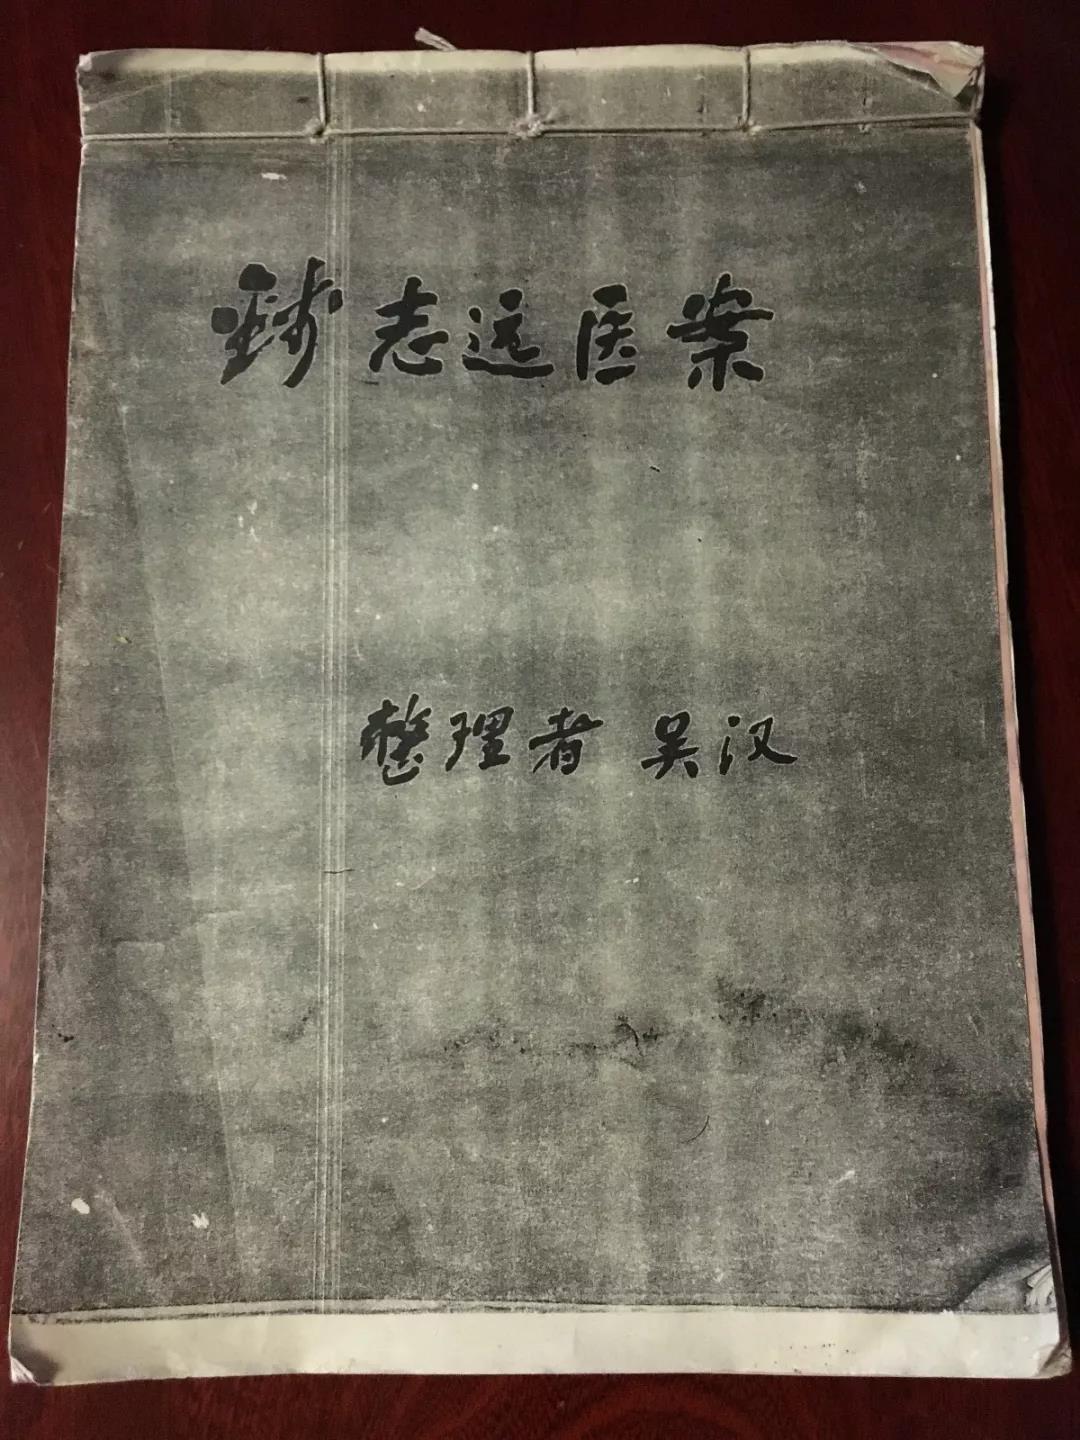 钱志远医案
整理者 吴汉